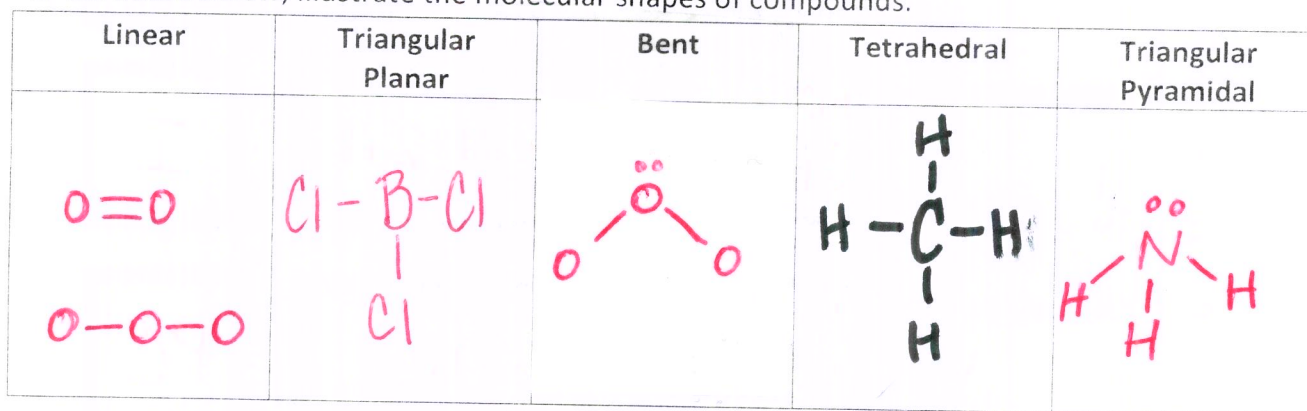 illustrate the molecular shapes of compounds.
Linear
Triangular
Planar
Bent
Tetrahedral
Triangular
Pyramidal
O=O
O-O-O
Cl-B-Cl
|
Cl
O
O O
H
|
H-C-H
|
H
N
H H
H